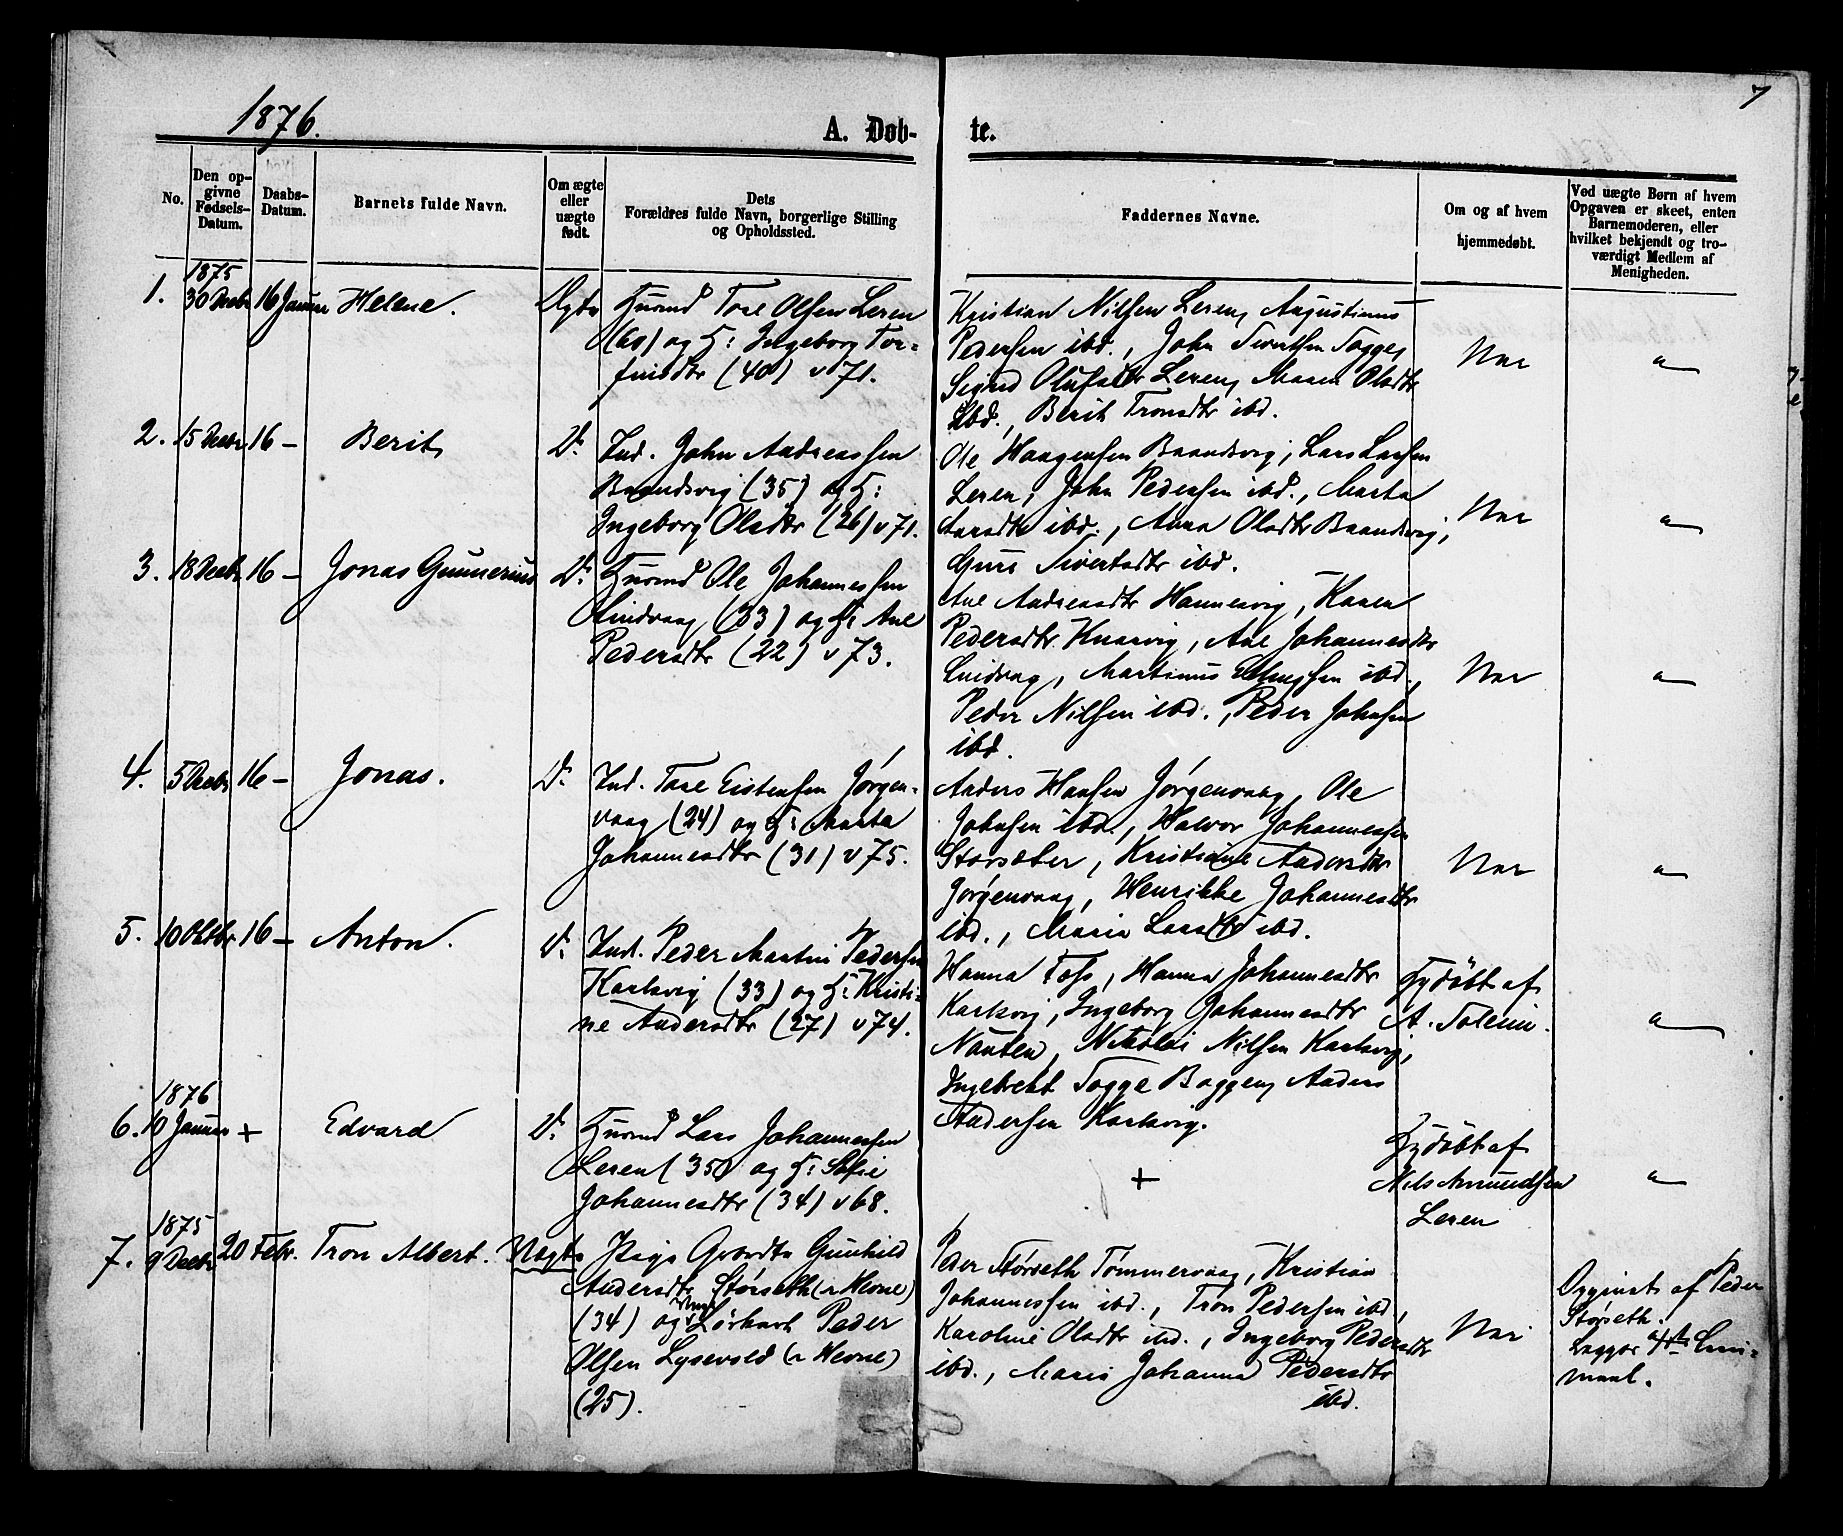 1876.
A. Døb-
te.
7
No.
Den op-
givne
Fødsels-
Datum.
Daabs-
Datum.
Barnets fulde Navn.
Om ægte
eller
uægte
født.
Dets
Forældres fulde Navn, borgerlige Stilling
og Opholdssted.
Faddernes Navne.
Om og af hvem
hjemmedøbt.
Ved uægte Børn af hvem
Opgaven er skeet, enten
Barnemoderen, eller
hvilket bekjendt og tro-
værdigt Medlem af
Menigheden.
1875
1. 30 Decbr 16 Januar Helene. Ægte
Tore Olsen Leren
(60) og H: Ingeborg Tor-
finsdtr (40) v 71.
Kristian Nilsen Leren, Augustinus
Pedersen ibd., John Sivertsen Togge,
Sigrid Olufsdtr Leren, Maren Olsdtr
ibd., Berit Tronsdtr ibd.
Nei
"
2. 15 Decbr 16 – Berit D:
Ind. John Andreassen
Brandsvig (35) og H:
Ingeborg Olsdtr (26) v 71.
Ole Haagensen Brandsvig, Lars Larsen
Leren, John Pedersen ibd., Marta
Larsdtr ibd., Anna Olsdtr Brandsvig,
Guri Sivertsdtr ibd.
Nei
"
3. 18 Decbr 16 – Jonas Gunnerius D:
Ole Johannessen
Lindvaag (33) og H: Ane
Pedersdtr (22) v 73.
Ane Andreasdtr Hannesvig, Karen
Pedersdtr Knarvig, Ane Johannesdtr
Lindvag, Martinus Ellingsen ibd.,
Peder Nilsen ibd., Peder Johnsen
ibd.
Nei
"
4. 5 Decbr 16 – Jonas. D:
Ind. Tore Eistensen Jørgen-
vaag (24) og H: Marta
Johannesdtr (31) v 75.
Anders Hansen Jørgenvaag, Ole
Johnsen ibd., Halvor Johannessen
Storsæter, Kristiane Andersdtr
Jørgenvaag, Henrikke Johannesdtr
ibd., Maria Larsdtr ibd.
Nei
"
5. 10 Oktbr 16 – Anton. D:
Ind. Peder Martin Pedersen
Karlsvig (33) og H: Kristi-
ne Andersdtr (27) v 74.
Hanna Foss, Hanna Johannesdtr
Karlsvig, Ingeborg Johannesdtr
Nikolai Nilsen Karlsvig,
Ingebrekt Togge Bagge, Anders
Andersen Karlsvig.
Hjdøbt af
A. Solem.
"
1876
6. 10 Januar + Edvard D:
Lars Johannessen
Leren (35) og H: Sofie
Johannesdtr (34) v 68.
+
Hjdøbt af
Nils Amundsen
Leren
"
1875
7. 9 Decbr 20 Febr. Tron Albert. Uægte
Pige Gunhild
Andersdtr Størseth (n Hevne)
(34) og Ungk. Peder
Olsen Lysevold (n Hevne)
(25).
Peder Størseth Tømmervaag, Kristian
Johannessen ibd., Tron Pedersen ibd.,
Karoline Olsdtr ibd., Ingeborg Pedersdtr
ibd., Maris Johanna Pedersdtr
ibd.
Nei
Opgivet af Peder
Størseth.
4de
maal.